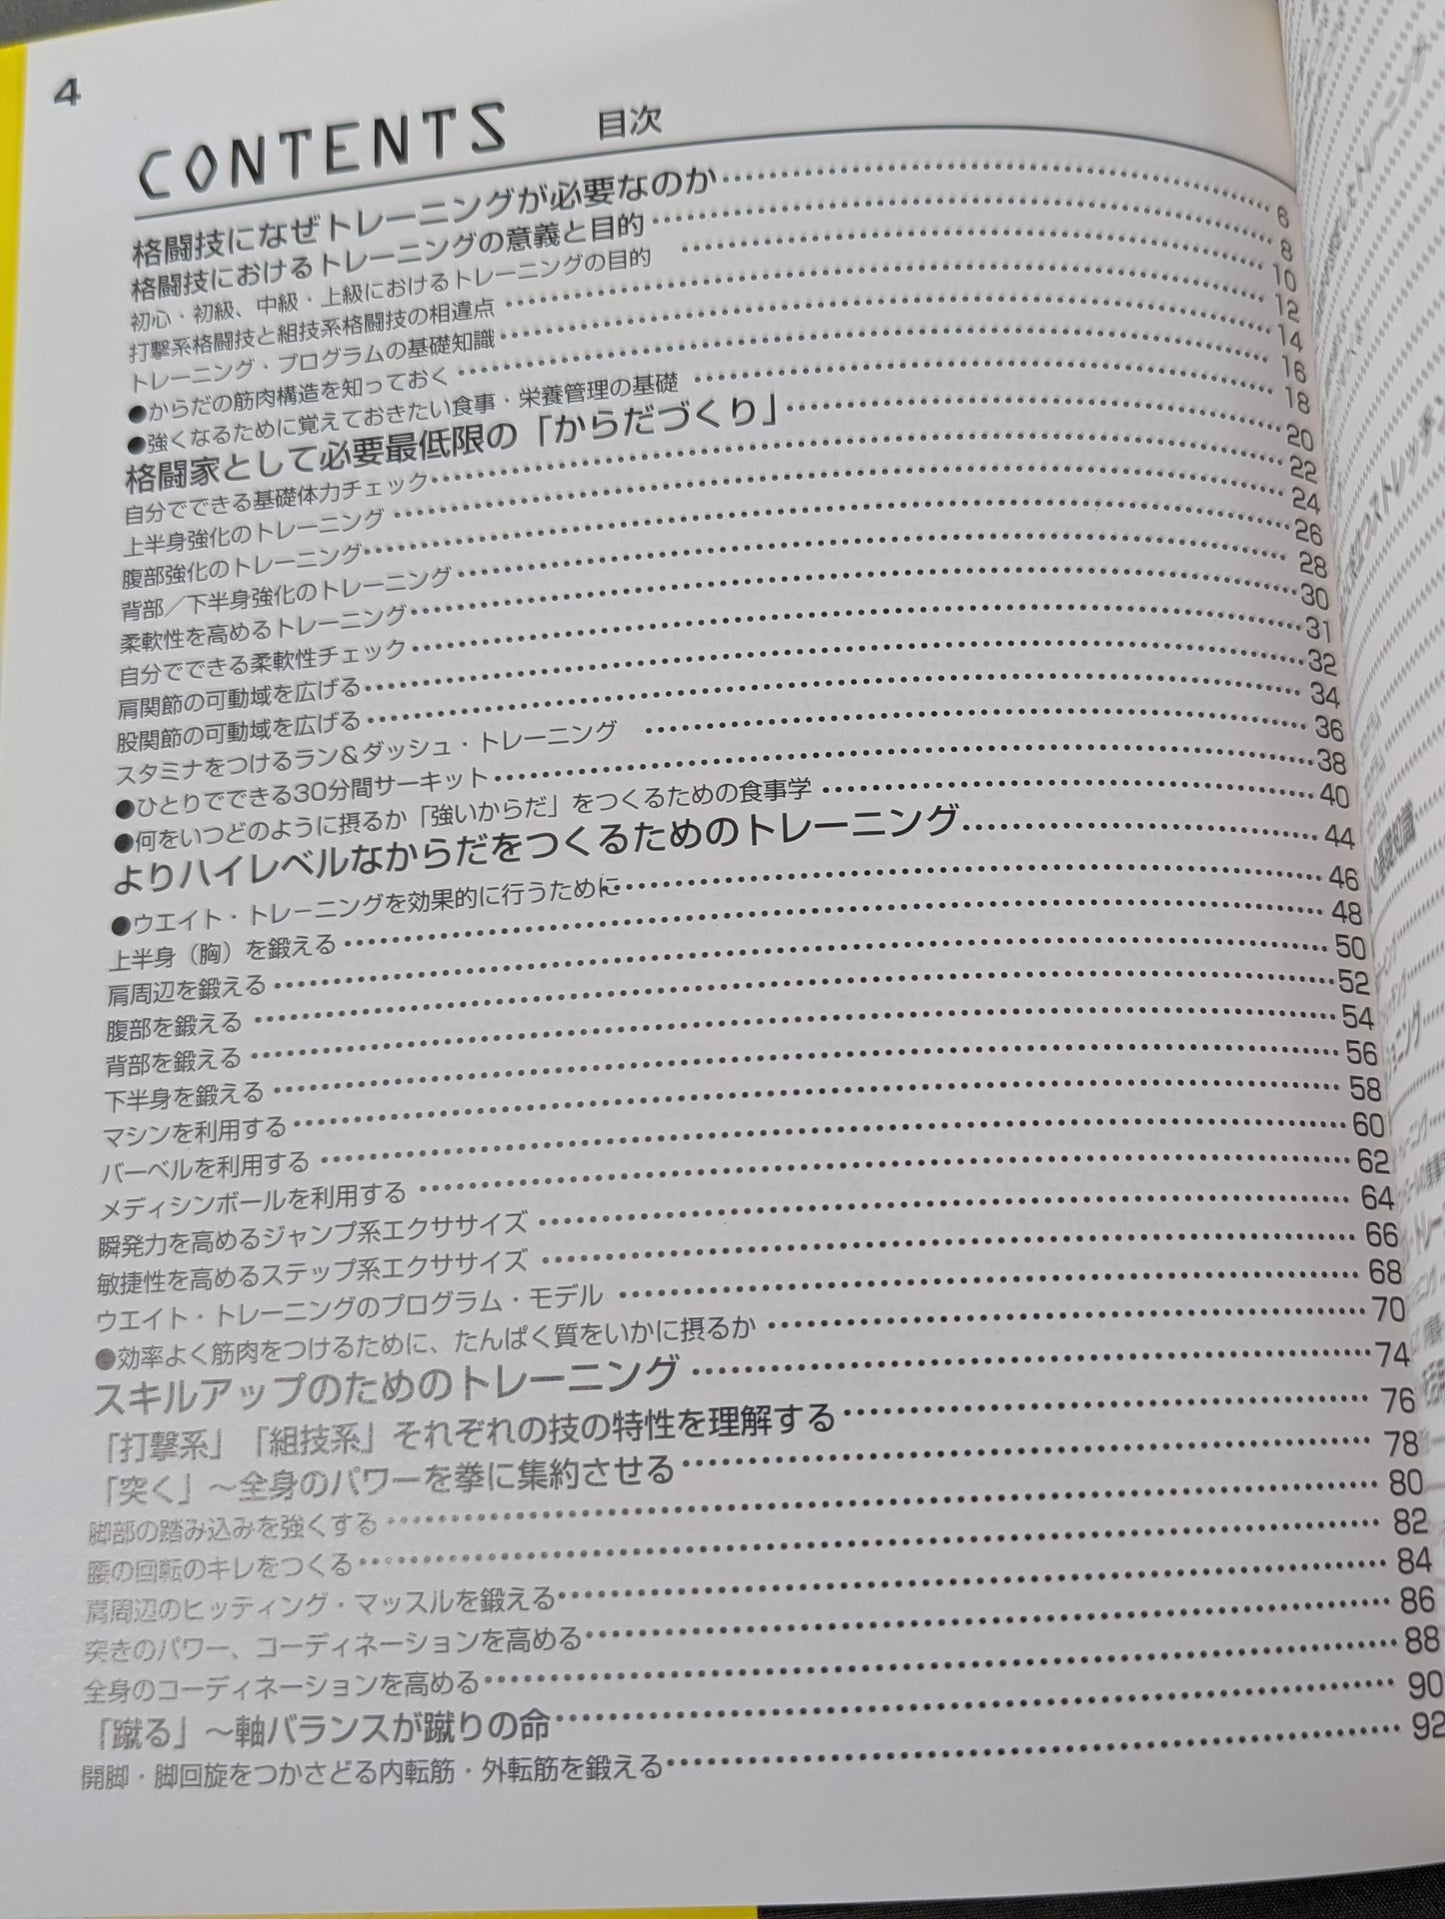 4
CONTENTS 目次
格闘技になぜトレーニングが必要なのか 6
格闘技におけるトレーニングの意義と目的 8
初心・初級、中級・上級におけるトレーニングの目的 10
打撃系格闘技と組技系格闘技の相違点 12
トレーニング・プログラムの基礎知識 14
●からだの筋肉構造を知っておく 16
●強くなるために覚えておきたい食事・栄養管理の基礎 18
格闘家として必要最低限の「からだづくり」 20
自分でできる基礎体力チェック 22
上半身強化のトレーニング 24
腹部強化のトレーニング 26
背部／下半身強化のトレーニング 28
柔軟性を高めるトレーニング 30
自分でできる柔軟性チェック 31
肩関節の可動域を広げる 32
股関節の可動域を広げる 34
スタミナをつけるラン＆ダッシュ・トレーニング 36
●ひとりでできる30分間サーキット 38
●何をいつどのように摂るか「強いからだ」をつくるための食事学 40
よりハイレベルなからだをつくるためのトレーニング 44
●ウエイト・トレーニングを効果的に行うために 46
上半身（胸）を鍛える 48
肩周辺を鍛える 50
腹部を鍛える 52
背部を鍛える 54
下半身を鍛える 56
マシンを利用する 58
バーベルを利用する 60
メディシンボールを利用する 62
瞬発力を高めるジャンプ系エクササイズ 64
敏捷性を高めるステップ系エクササイズ 66
ウエイト・トレーニングのプログラム・モデル 68
●効率よく筋肉をつけるために、たんぱく質をいかに摂るか 70
スキルアップのためのトレーニング 74
「打撃系」「組技系」それぞれの技の特性を理解する 76
「突く」～全身のパワーを拳に集約させる 78
脚部の踏み込みを強くする 80
腰の回転のキレをつくる 82
肩周辺のヒッティング・マッスルを鍛える 84
突きのパワー、コーディネーションを高める 86
全身のコーディネーションを高める 88
「蹴る」～軸バランスが蹴りの命 90
開脚・脚回旋をつかさどる内転筋・外転筋を鍛える 92